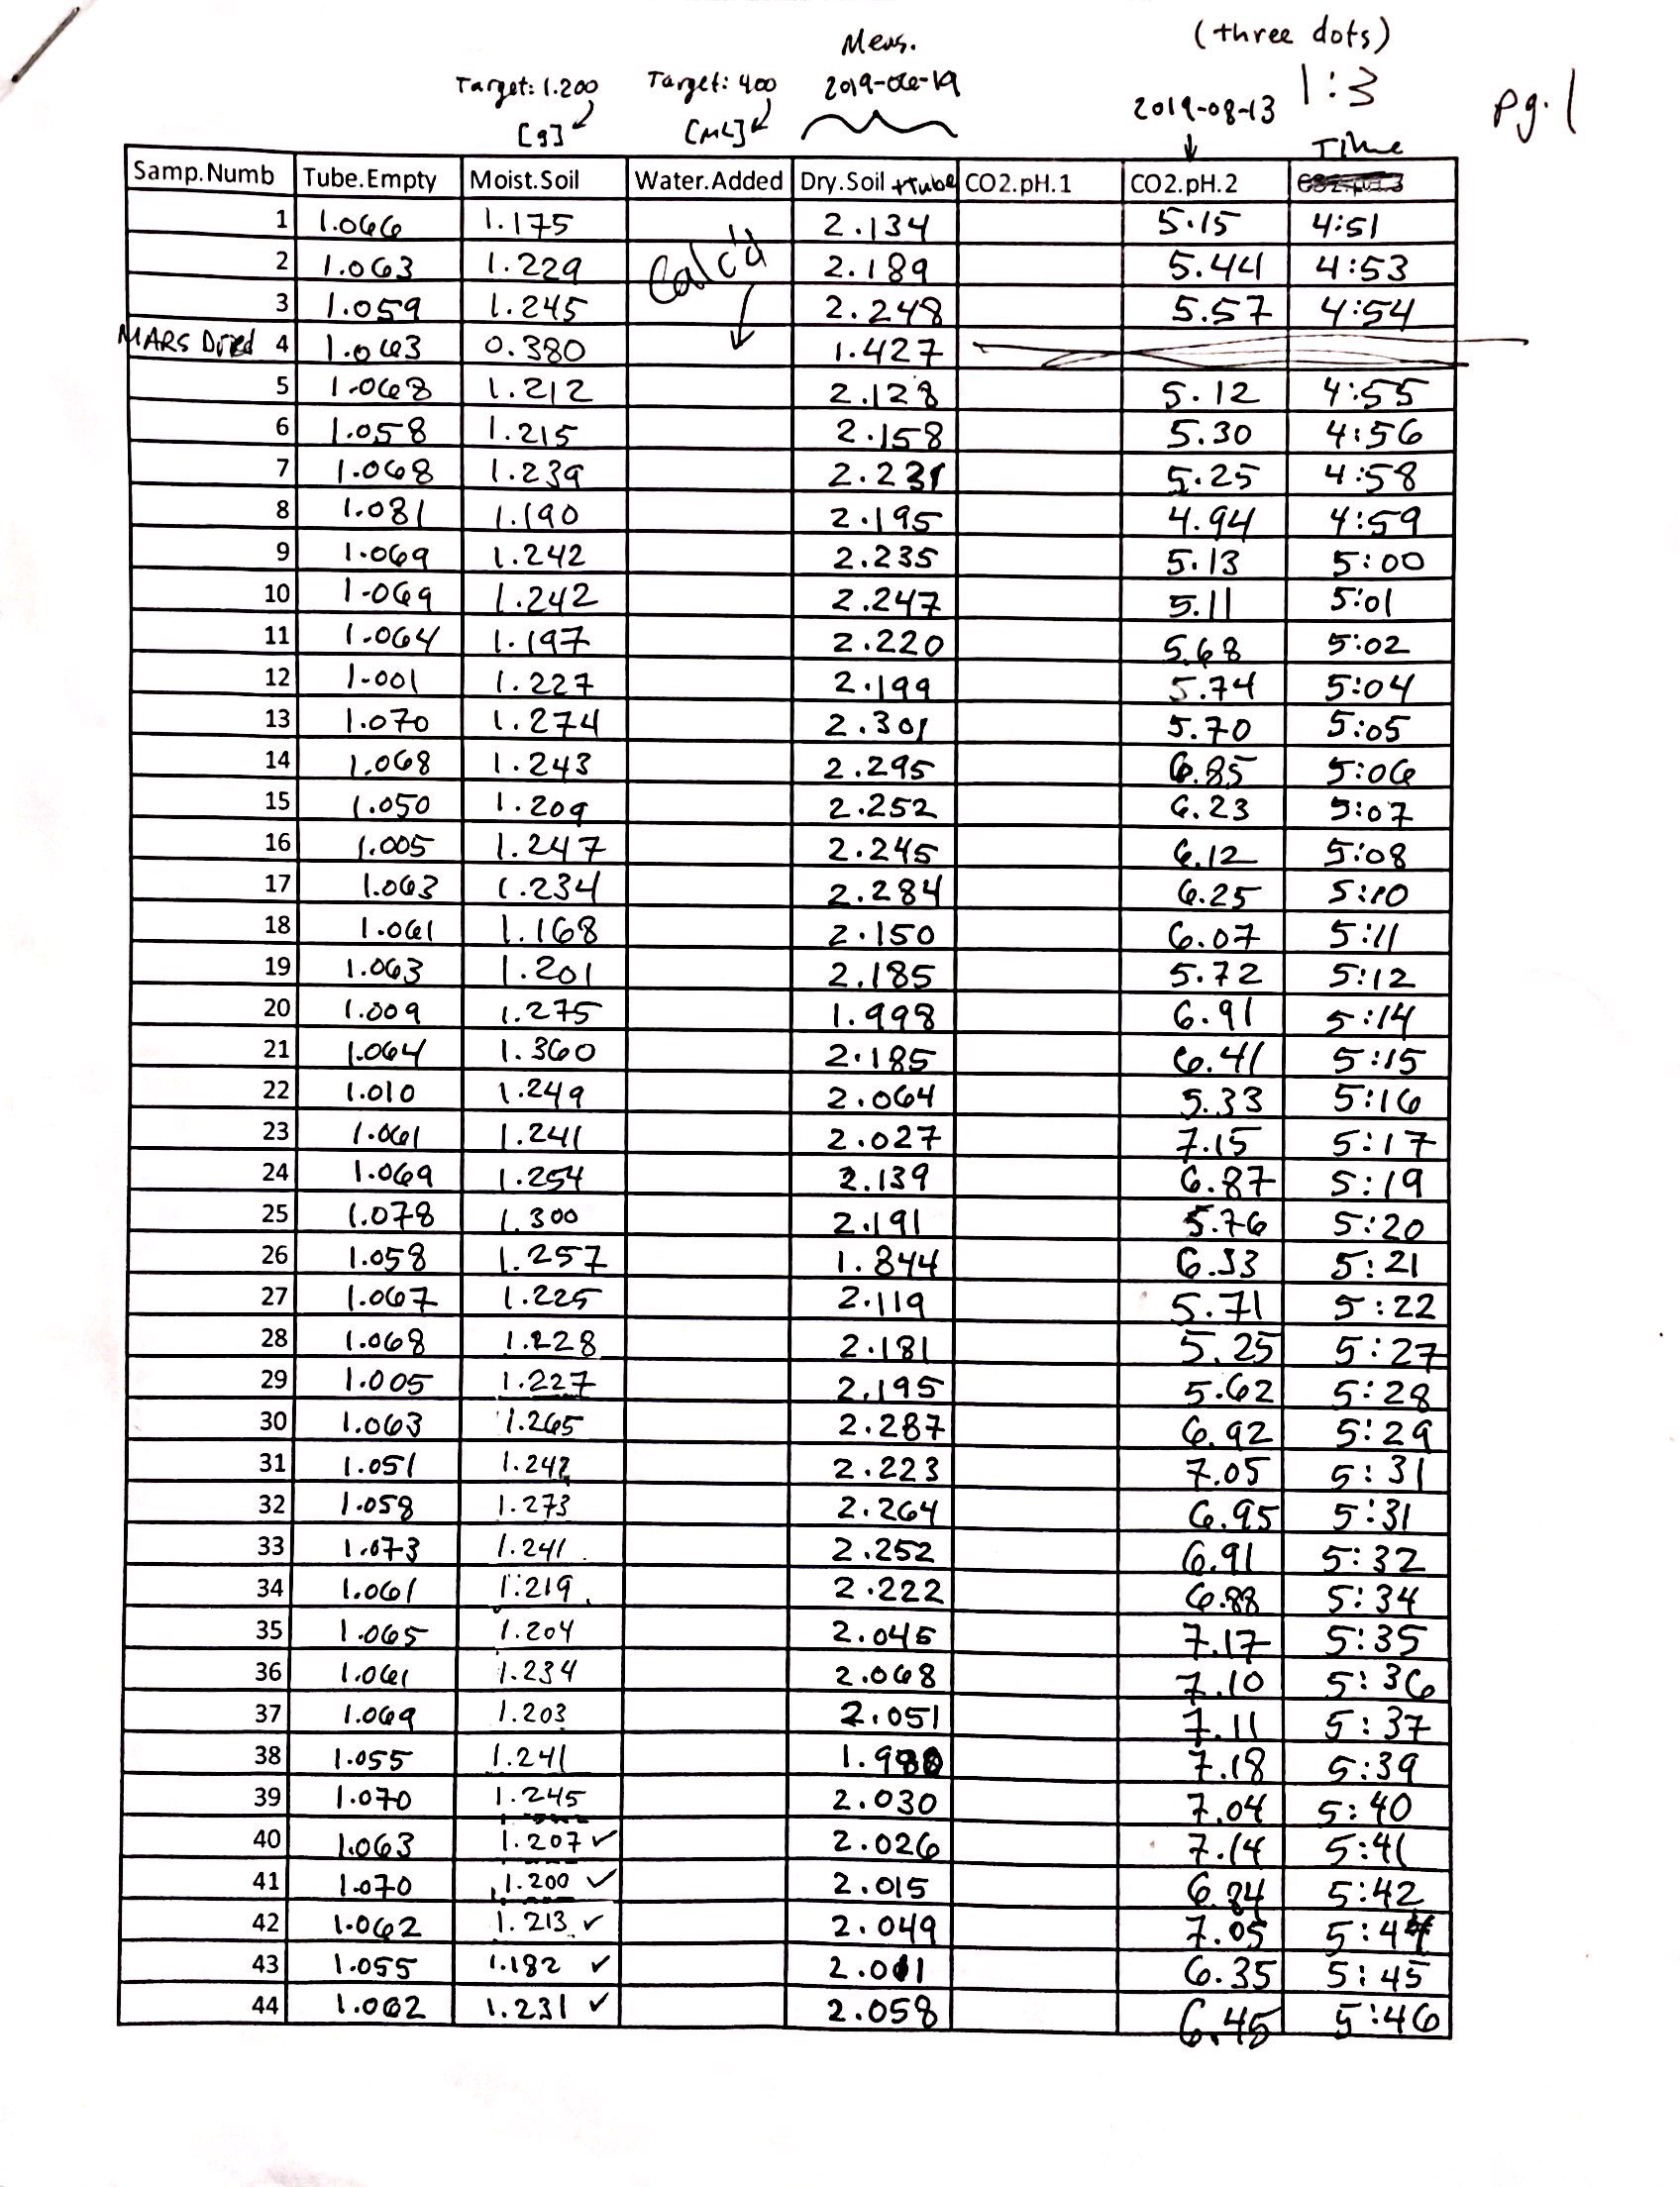 (three dots)
Meas.
Target: 1.200 Target: 400 2019-06-19 2019-08-13 1:3 pg. 1
[g] [mL] Time
Samp.Numb Tube.Empty Moist.Soil Water.Added Dry.Soil +Tube CO2.pH.1 CO2.pH.2
1 1.066 1.175 2.134 5.15 4:51
2 1.063 1.229 Calc'd 2.189 5.44 4:53
3 1.059 1.245 2.248 5.57 4:54
MARS Dried 4 1.063 0.380 1.427
5 1.068 1.212 2.128 5.12 4:55
6 1.058 1.215 2.158 5.30 4:56
7 1.068 1.239 2.231 5.25 4:58
8 1.081 1.190 2.195 4.94 4:59
9 1.069 1.242 2.235 5.13 5:00
10 1.069 1.242 2.247 5.11 5:01
11 1.064 1.197 2.220 5.68 5:02
12 1.001 1.227 2.199 5.74 5:04
13 1.070 1.274 2.301 5.70 5:05
14 1.068 1.243 2.295 6.85 5:06
15 1.050 1.209 2.252 6.23 5:07
16 1.005 1.247 2.245 6.12 5:08
17 1.063 1.234 2.284 6.25 5:10
18 1.061 1.168 2.150 6.07 5:11
19 1.063 1.201 2.185 5.72 5:12
20 1.009 1.275 1.998 6.91 5:14
21 1.064 1.360 2.185 6.41 5:15
22 1.010 1.249 2.064 5.33 5:16
23 1.061 1.241 2.027 7.15 5:17
24 1.069 1.254 2.139 6.87 5:19
25 1.078 1.300 2.191 5.76 5:20
26 1.058 1.257 1.844 6.33 5:21
27 1.067 1.225 2.119 5.71 5:22
28 1.068 1.228 2.181 5.25 5:27
29 1.005 1.227 2.195 5.62 5:28
30 1.063 1.265 2.287 6.92 5:29
31 1.051 1.242 2.223 7.05 5:31
32 1.058 1.273 2.264 6.95 5:31
33 1.073 1.241 2.252 6.91 5:32
34 1.061 1.219 2.222 6.88 5:34
35 1.065 1.204 2.045 7.17 5:35
36 1.061 1.234 2.068 7.10 5:36
37 1.069 1.203 2.051 7.11 5:37
38 1.055 1.241 7.18 5:39
39 1.070 1.245 2.030 7.04 5:40
40 1.063 1.207 ✓ 2.026 7.14 5:41
41 1.070 1.200 ✓ 2.015 6.84 5:42
42 1.062 1.213 ✓ 2.049 7.05 5:44
43 1.055 1.182 ✓ 2.011 6.35 5:45
44 1.062 1.231 ✓ 2.058 6.45 5:46